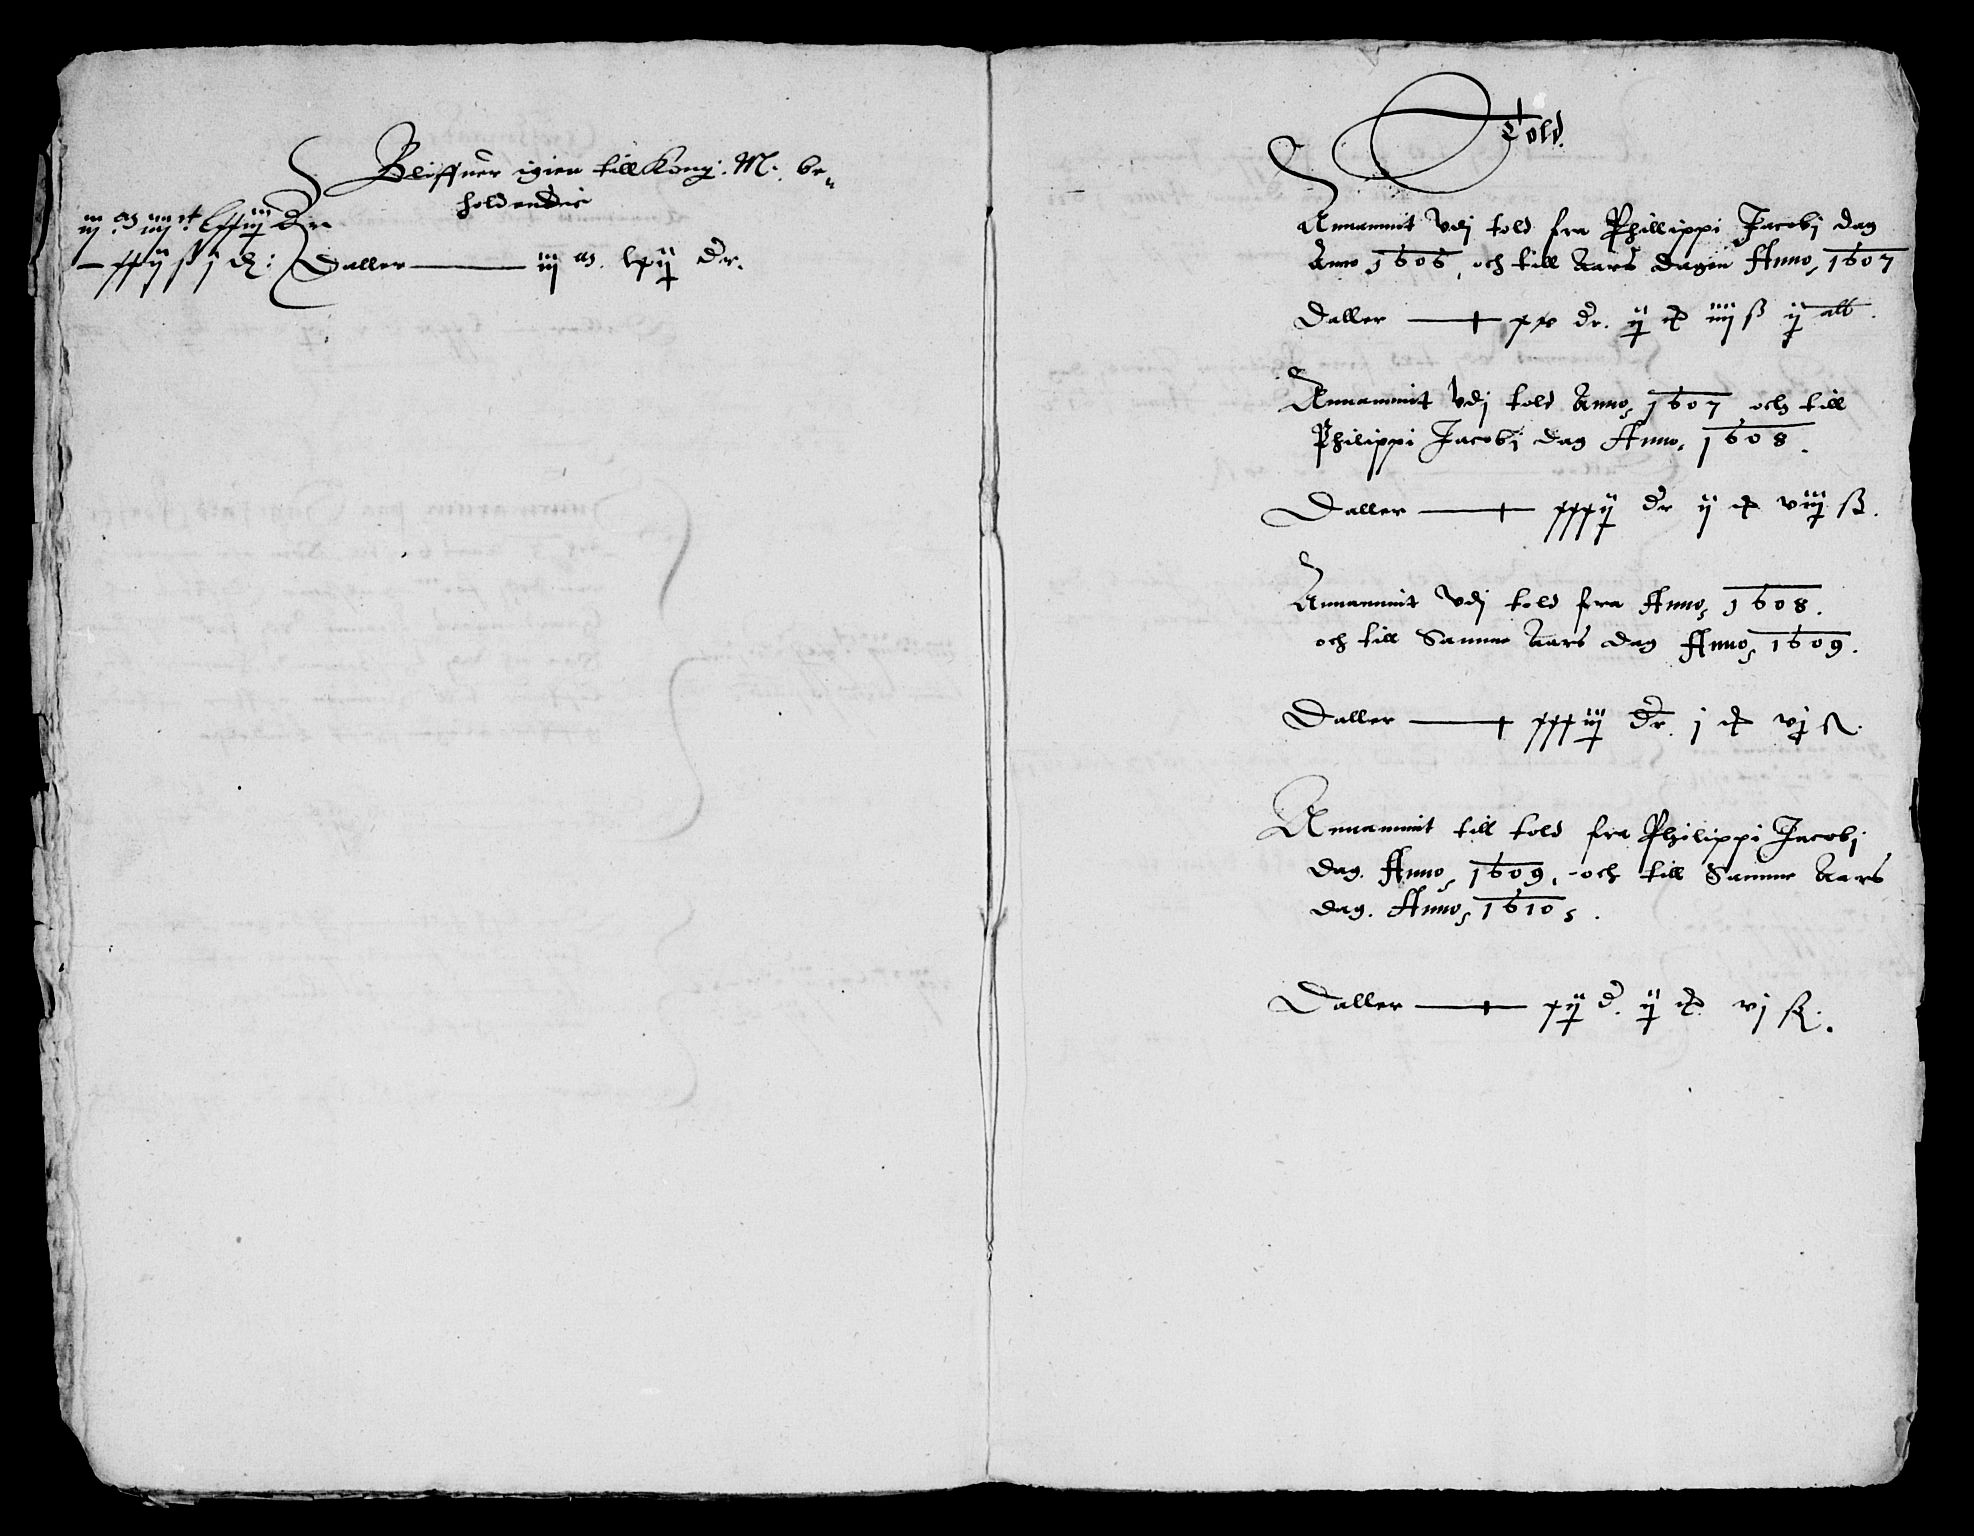 Bliffuer igien till Kong: M: be„
holdendis
iij m iiij c lxxiij dr
— xxij ß j ꝺ: Daller — iij m. lxij dr.
Told.
Annammit Vdj told fra Phillippi Jacobj dag
Anno 1606, och till Aars dagen Anno, 1607
Daller — xxv dr. ij ort iiij ß ij alb.
Annammit Vdj told Anno, 1607 och till
Philippi Jacobj dag Anno, 1608.
Daller — xxxxij dr ij ort viij ß.
Annammit Vdj told fra Anno, 1608.
och till Samme Aars dag Anno, 1609.
Daller — xxxiij dr. j ort vj ß.
Annammit till told fra Philippi Jacobj
dag. Anno, 1609, och till Samme Aars
dag. Anno, 1610,.
Daller — xij d. ij ort vj ß.